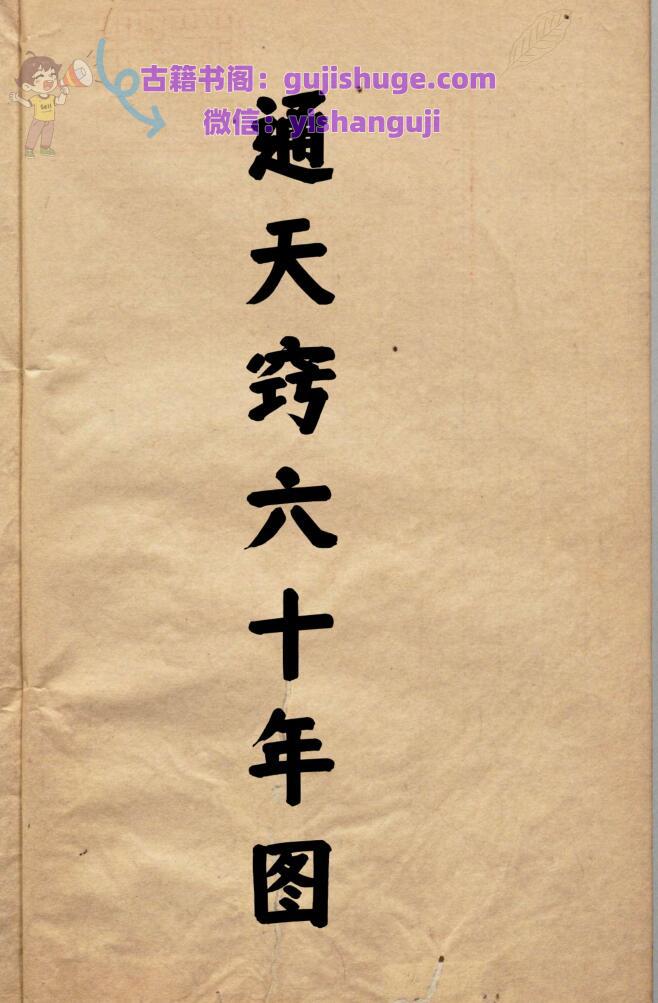 古籍书阁：gujishuge.com
微信：yishanguji
通天窍六十年图